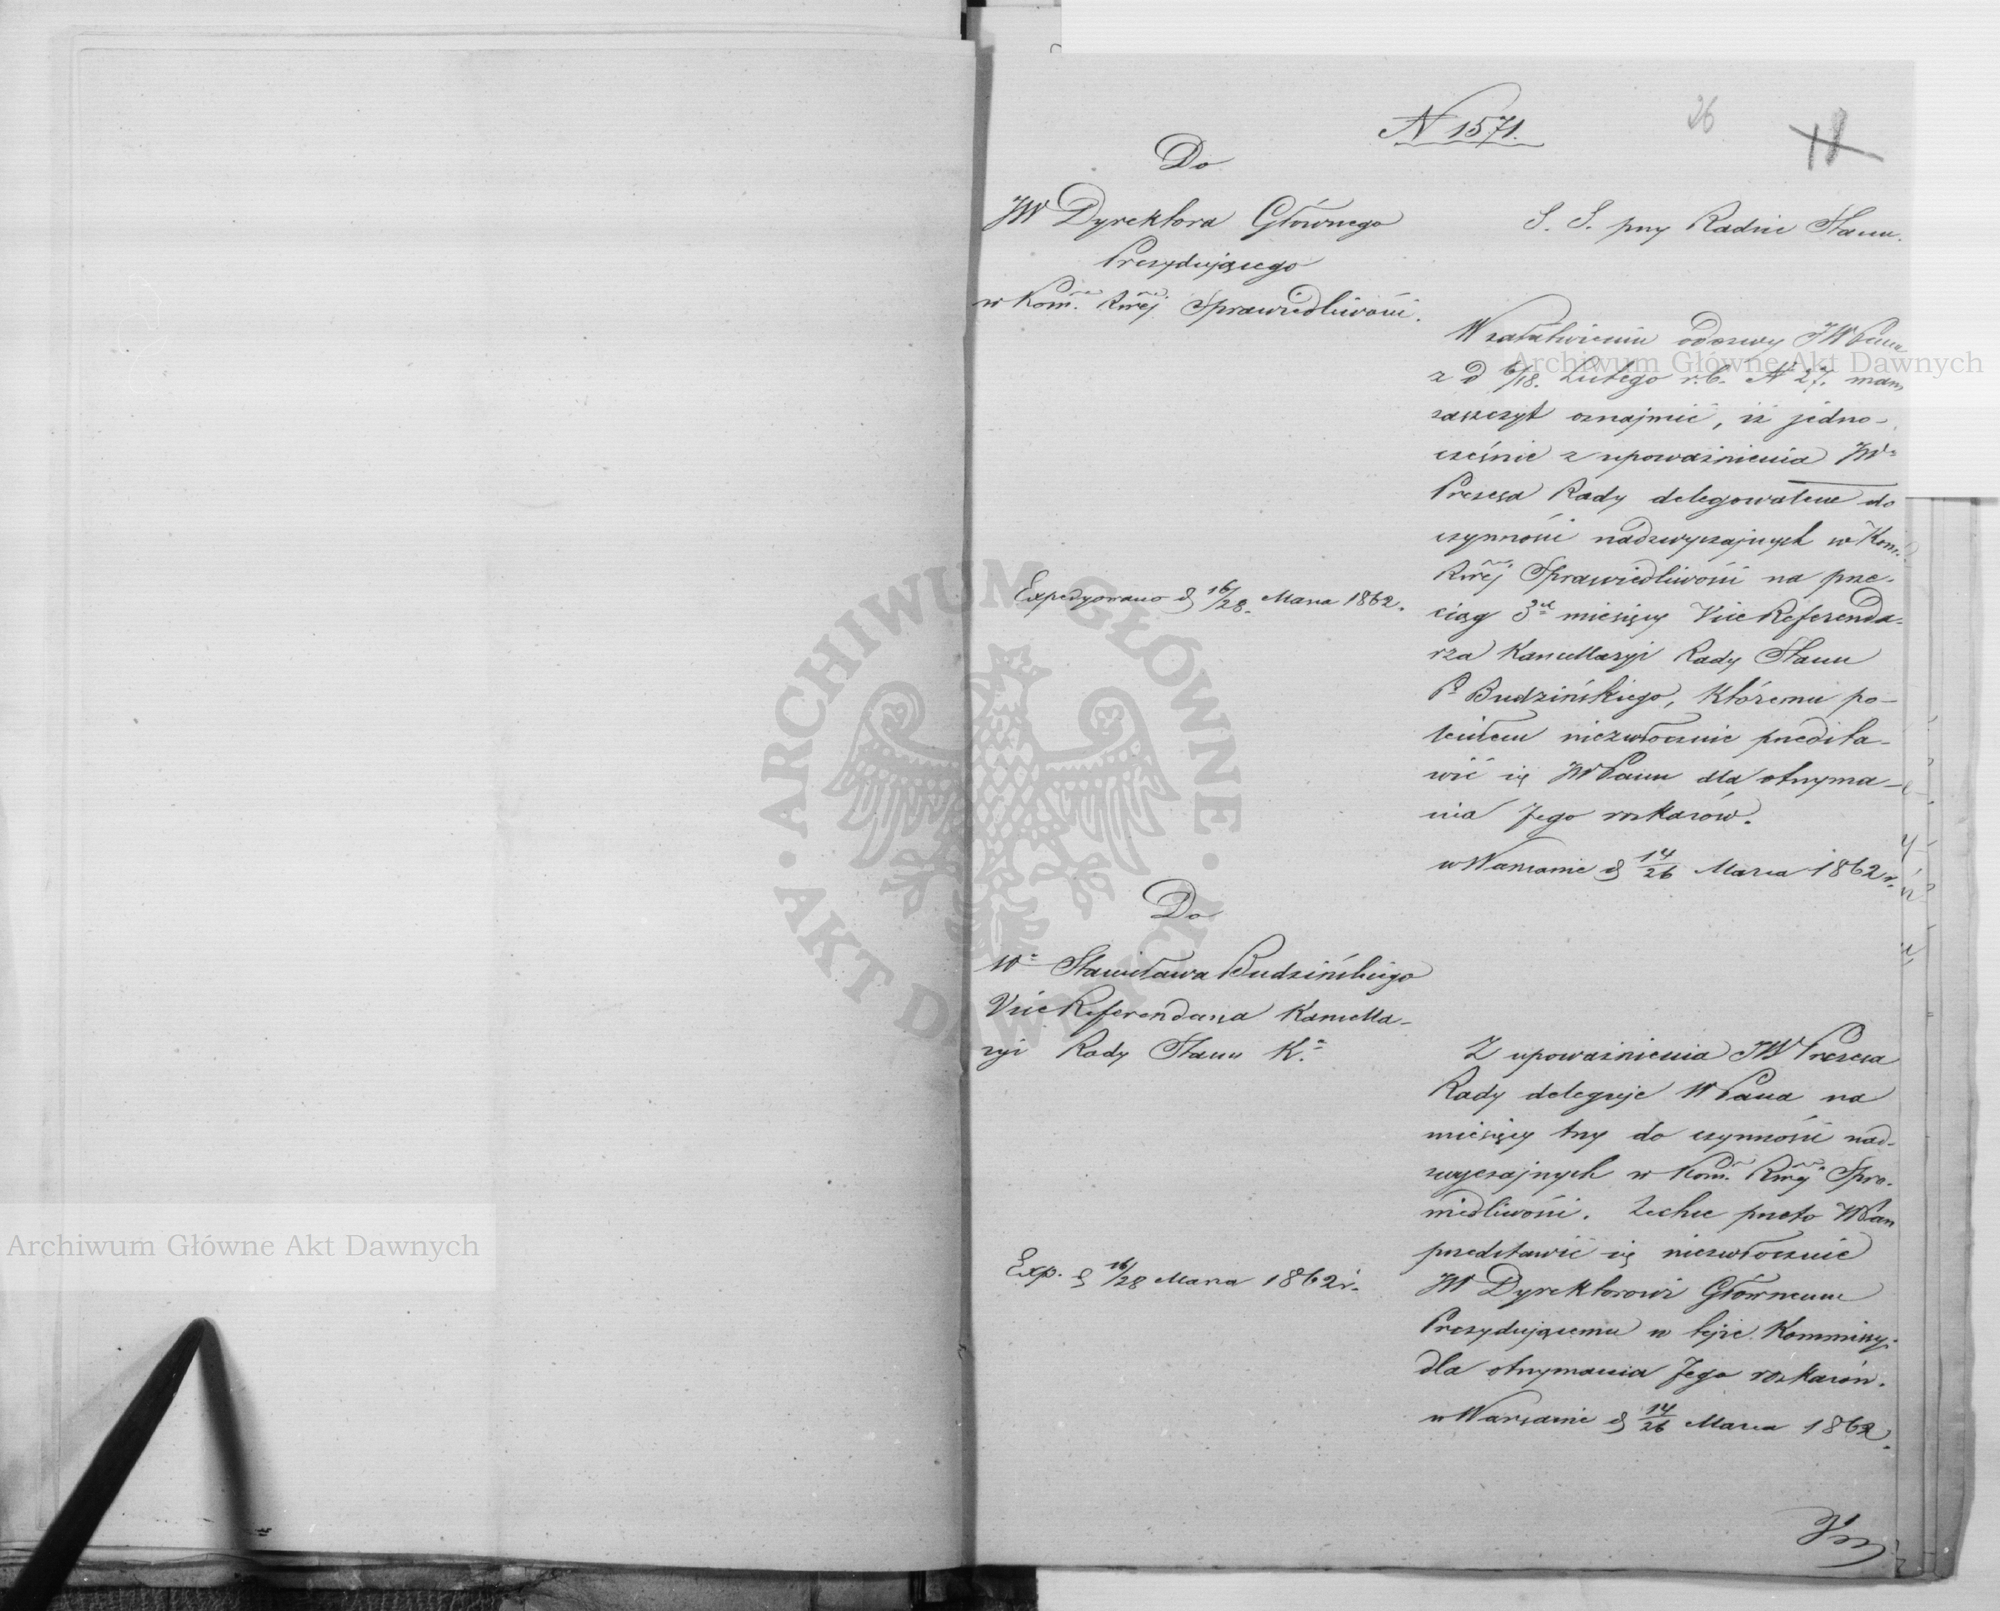 N 1571.
26
Do
JW Dyrektora Głównego
Prezydującego
w Kom. Rwej Sprawiedliwości.
S. S. przy Radzie Stanu.
W załatwieniu odezwy JWPana
z d 6/18. Lutego r.b. N 27. mam
zaszczyt oznajmić, iż jedno-
cześnie z upoważnienia JW
Prezesa Rady delegowałem do
czynności nadzwyczajnych w Kom.
Rwej Sprawiedliwości na prze-
ciąg 3ch miesięcy Vice Referenda-
rza Kancellaryi Rady Stanu
P. Budzińskiego, któremu po-
leciłem niezwłocznie przedsta-
wić się JWPanu dla otrzyma-
nia Jego rozkazów.
w Warszawie d 14/26 Marca 1862 r.
Expedyowano d 16/28. Marca 1862.
Do
W Stanisława Budzińskiego
Vice Referendarza Kancella-
ryi Rady Stanu K.
Z upoważnienia JW Prezesa
Rady deleguje WPana na
miesięcy trzy do czynności nad-
zwyczajnych w Kom. Rwej Spra-
wiedliwości. Zechce przeto WPan
przedstawić się niezwłocznie
JW Dyrektorowi Głównemu
Prezydującemu w tejże Kommissyi
dla otrzymania Jego rozkazów.
w Warszawie d 14/26 Marca 1862.
Exp. d 16/28 Marca 1862 r.
Archiwum Główne Akt Dawnych
Archiwum Główne Akt Dawnych
ARCHIWUM GŁÓWNE AKT DAWNYCH